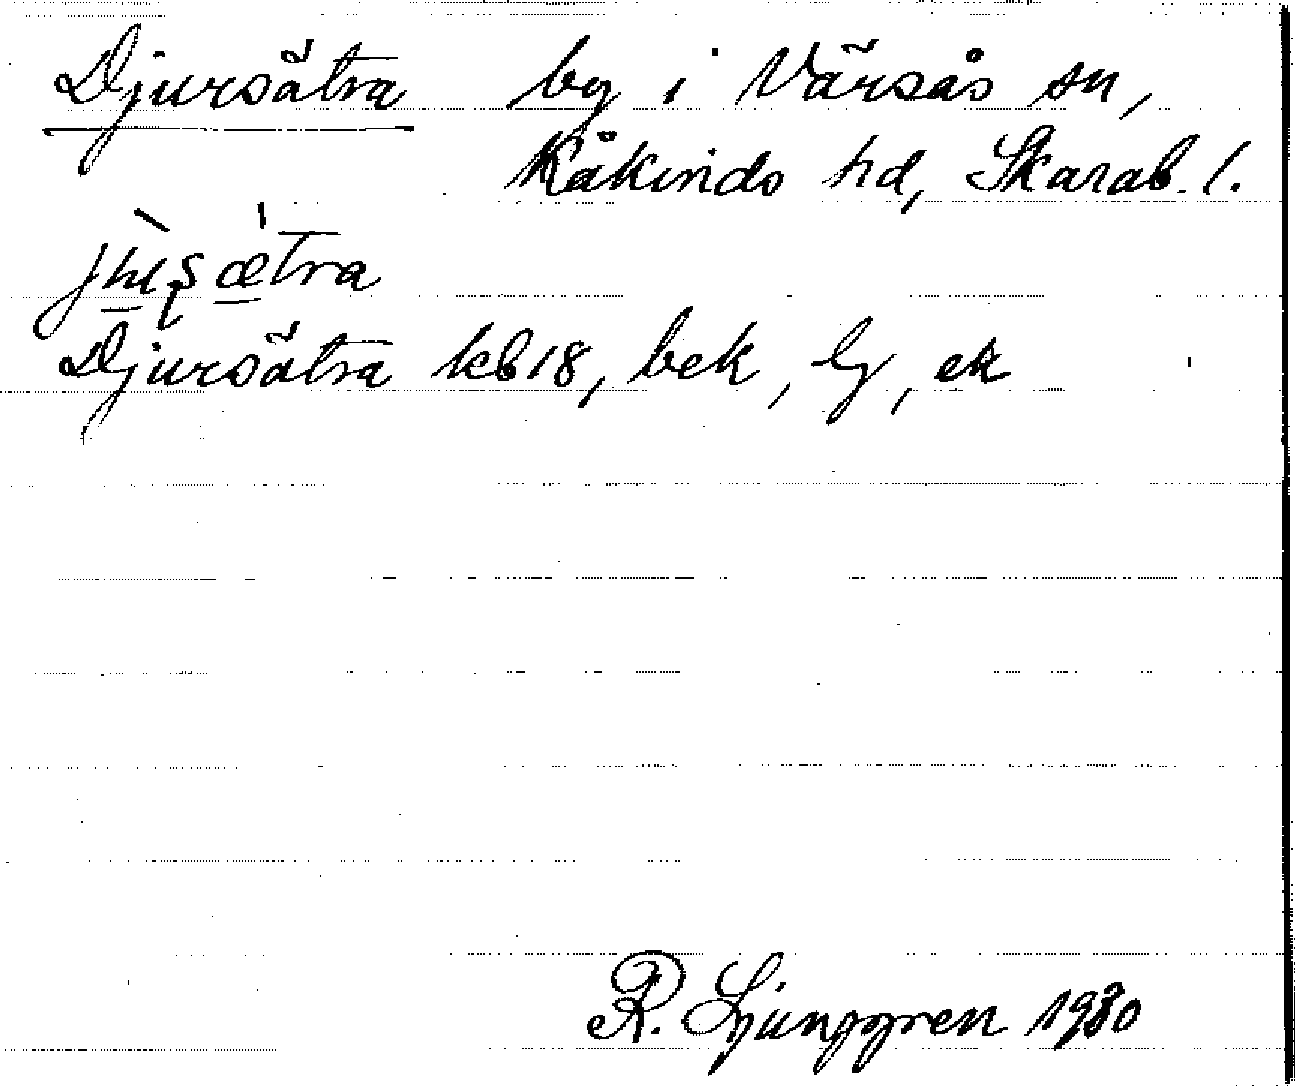 Djursätra by i Värsås sn,
Kåkinds hd, Skarab. l.
Djursätra kb18, bek, lg, ek
R. Ljunggren 1930